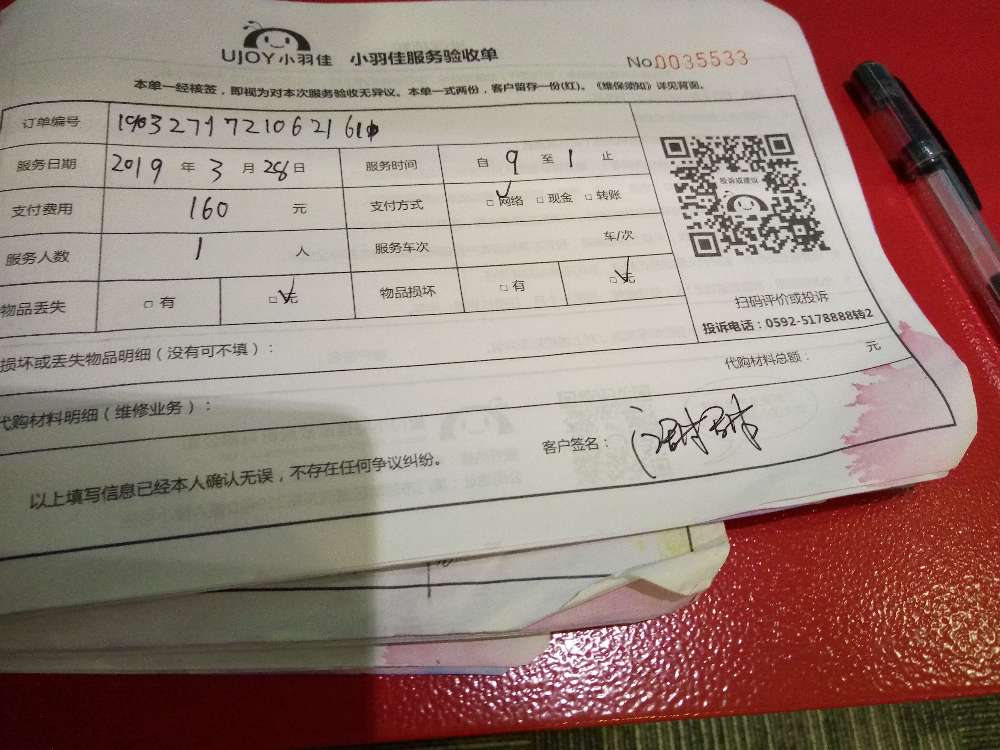 UJOY小羽佳 小羽佳服务验收单 No.0035533
本单一经接签，即视为对本次服务验收无异议。本单一式两份，客户留存一份(红)。《维保须知》详见背面。
订单编号
服务日期 2019 年 3 月 28 日 服务时间 自 9 至 1 止
支付费用 160 元 支付方式 □ 网络 □ 现金 □ 转账
服务人数 1 人 服务车次 车/次
物品丢失 □ 有 □ 无 物品损坏 □ 有 □ 无
投诉或建议
扫码评价或投诉
投诉电话：0592-5178888转2
损坏或丢失物品明细（没有可不填）：
代购材料总额： 元
代购材料明细（维修业务）：
客户签名：
以上填写信息已经本人确认无误，不存在任何争议纠纷。